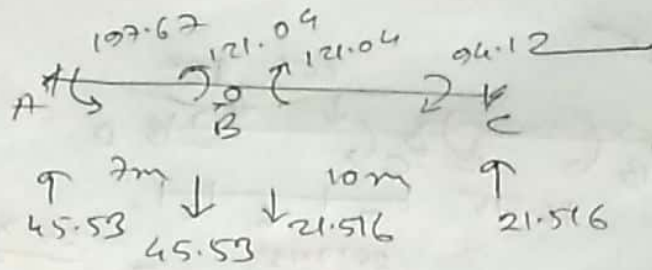 197.67 121.04 121.04 94.12
A B C
7m 10m
45.53 45.53 21.516 21.516